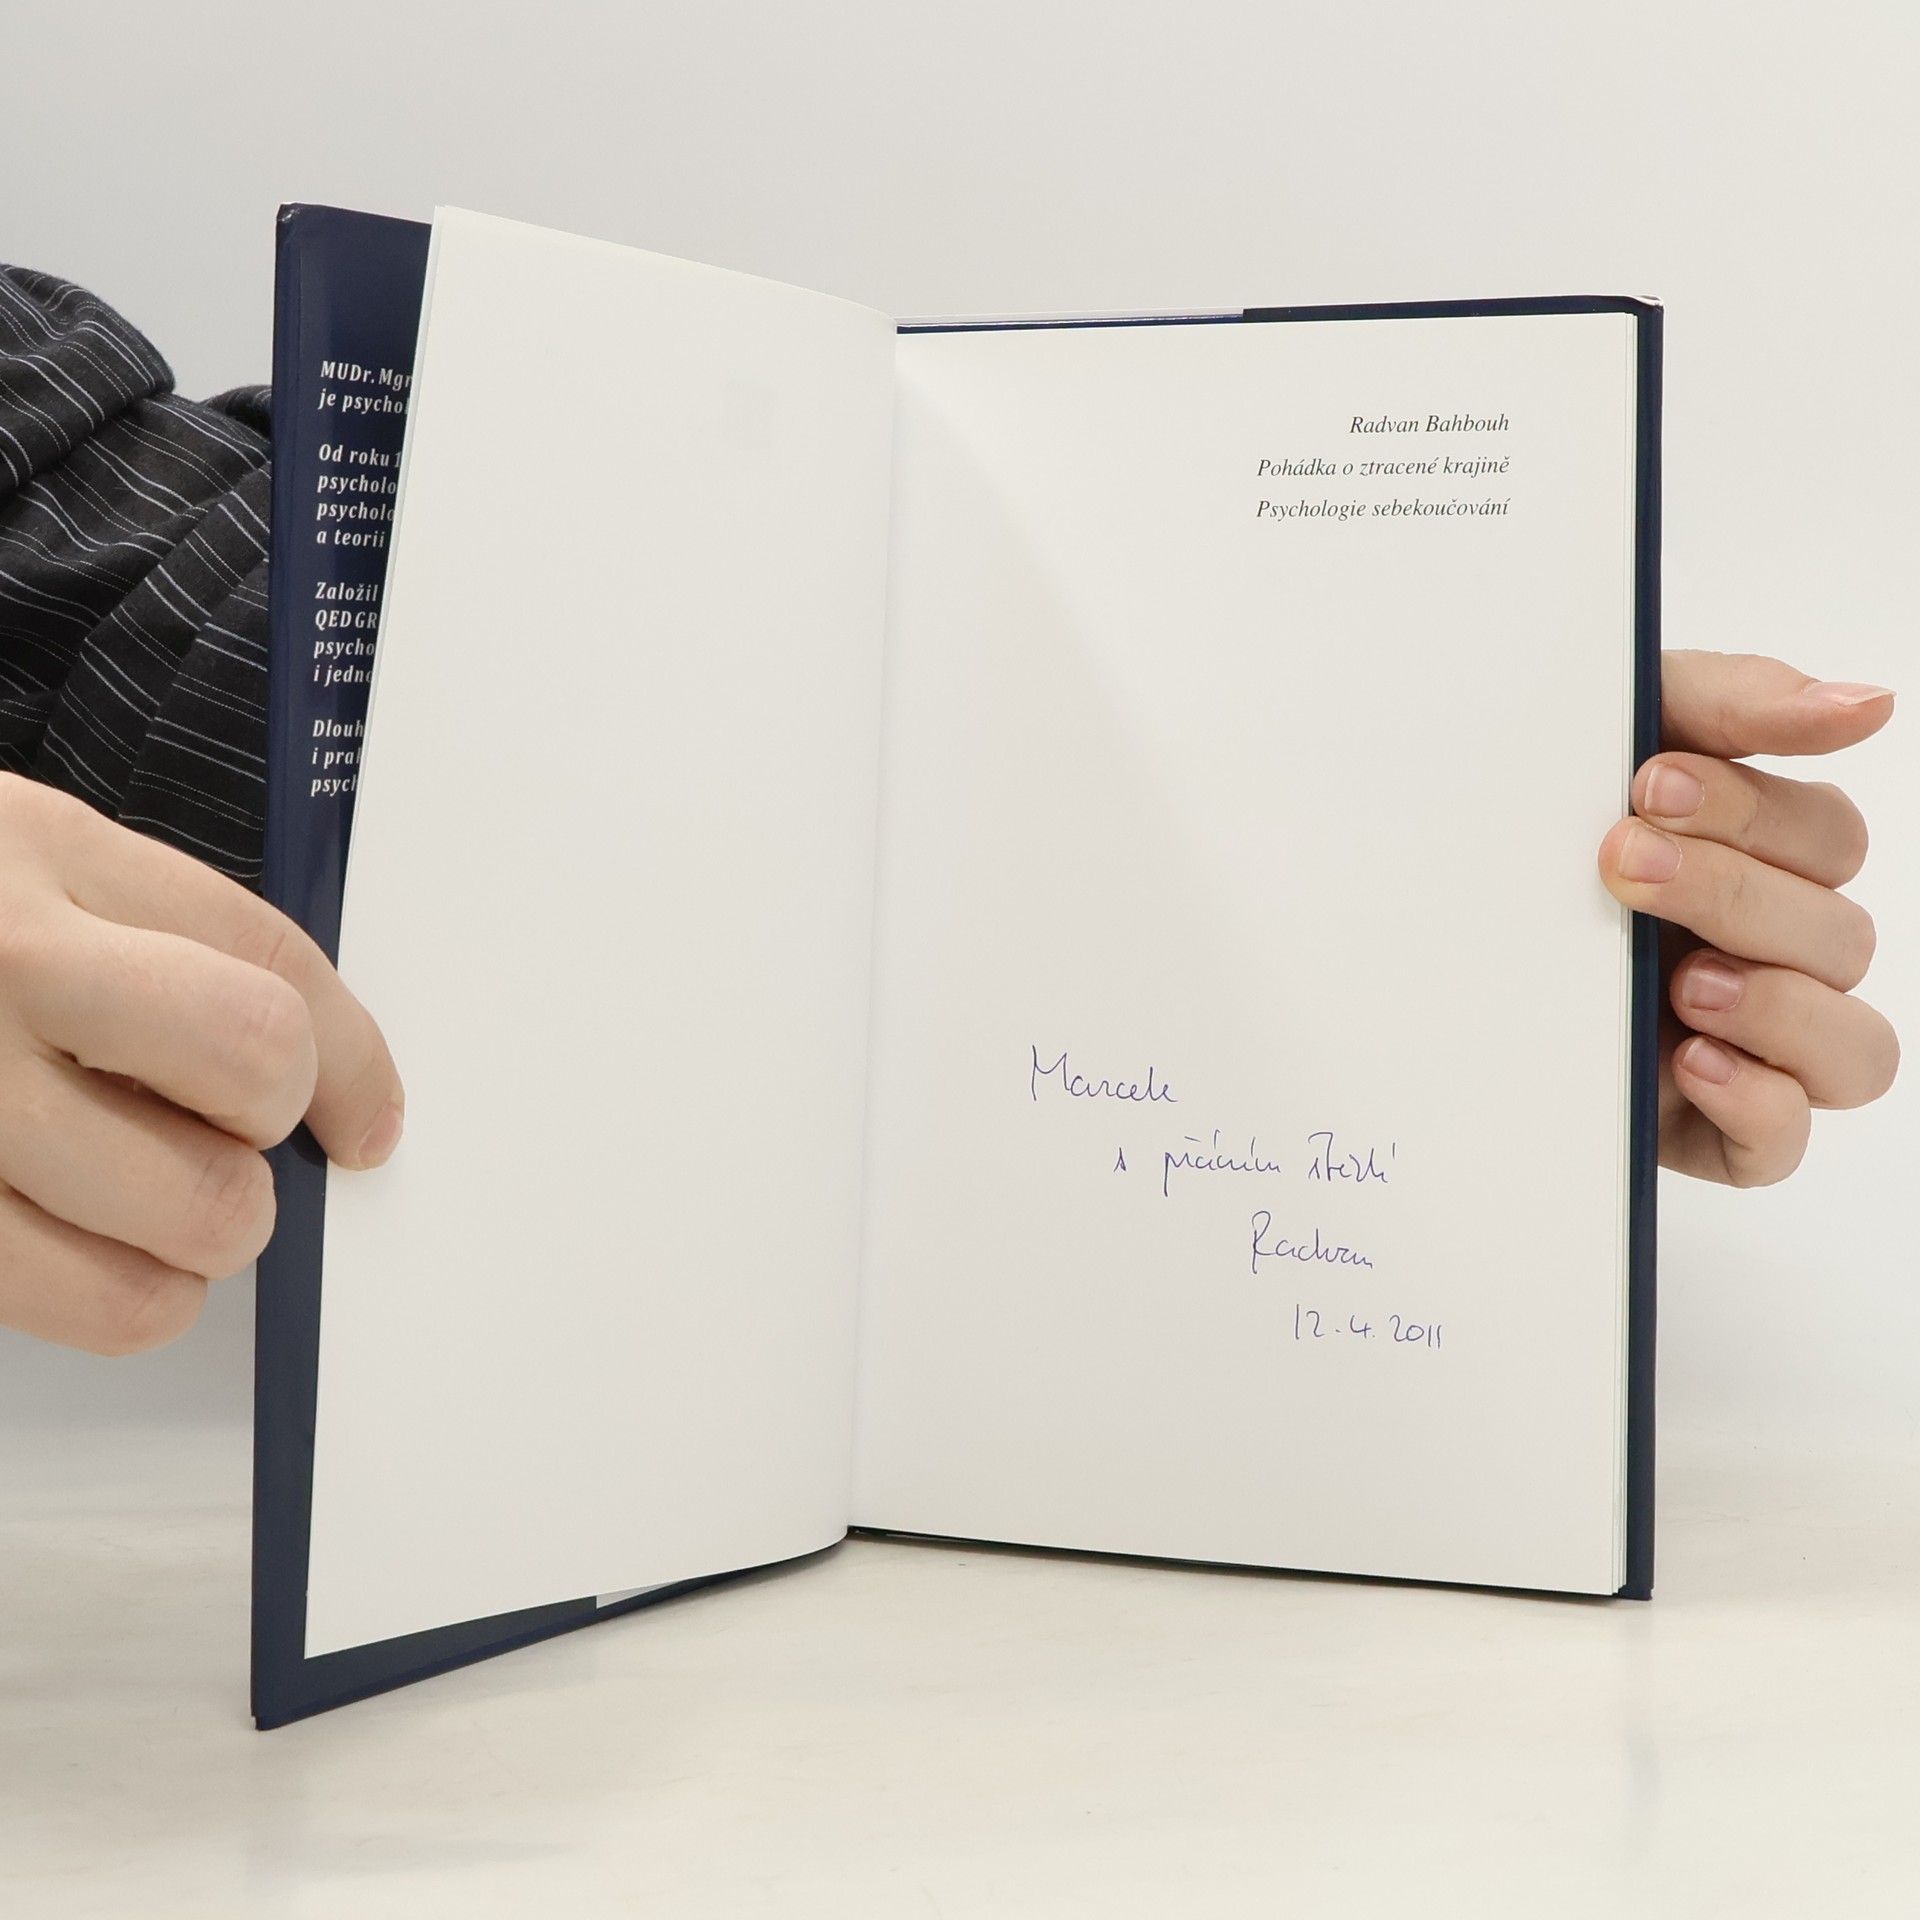 MUDr. Mgr
je psychol
Od roku 1
psycholo
psycholo
a teorii
Založil
QED GR
psycho
i jedno
Dlouh
i pra
psych
Radvan Bahbouh
Pohádka o ztracené krajině
Psychologie sebekoučování
Marcele
s přáním štěstí
Radvan
12.4.2011